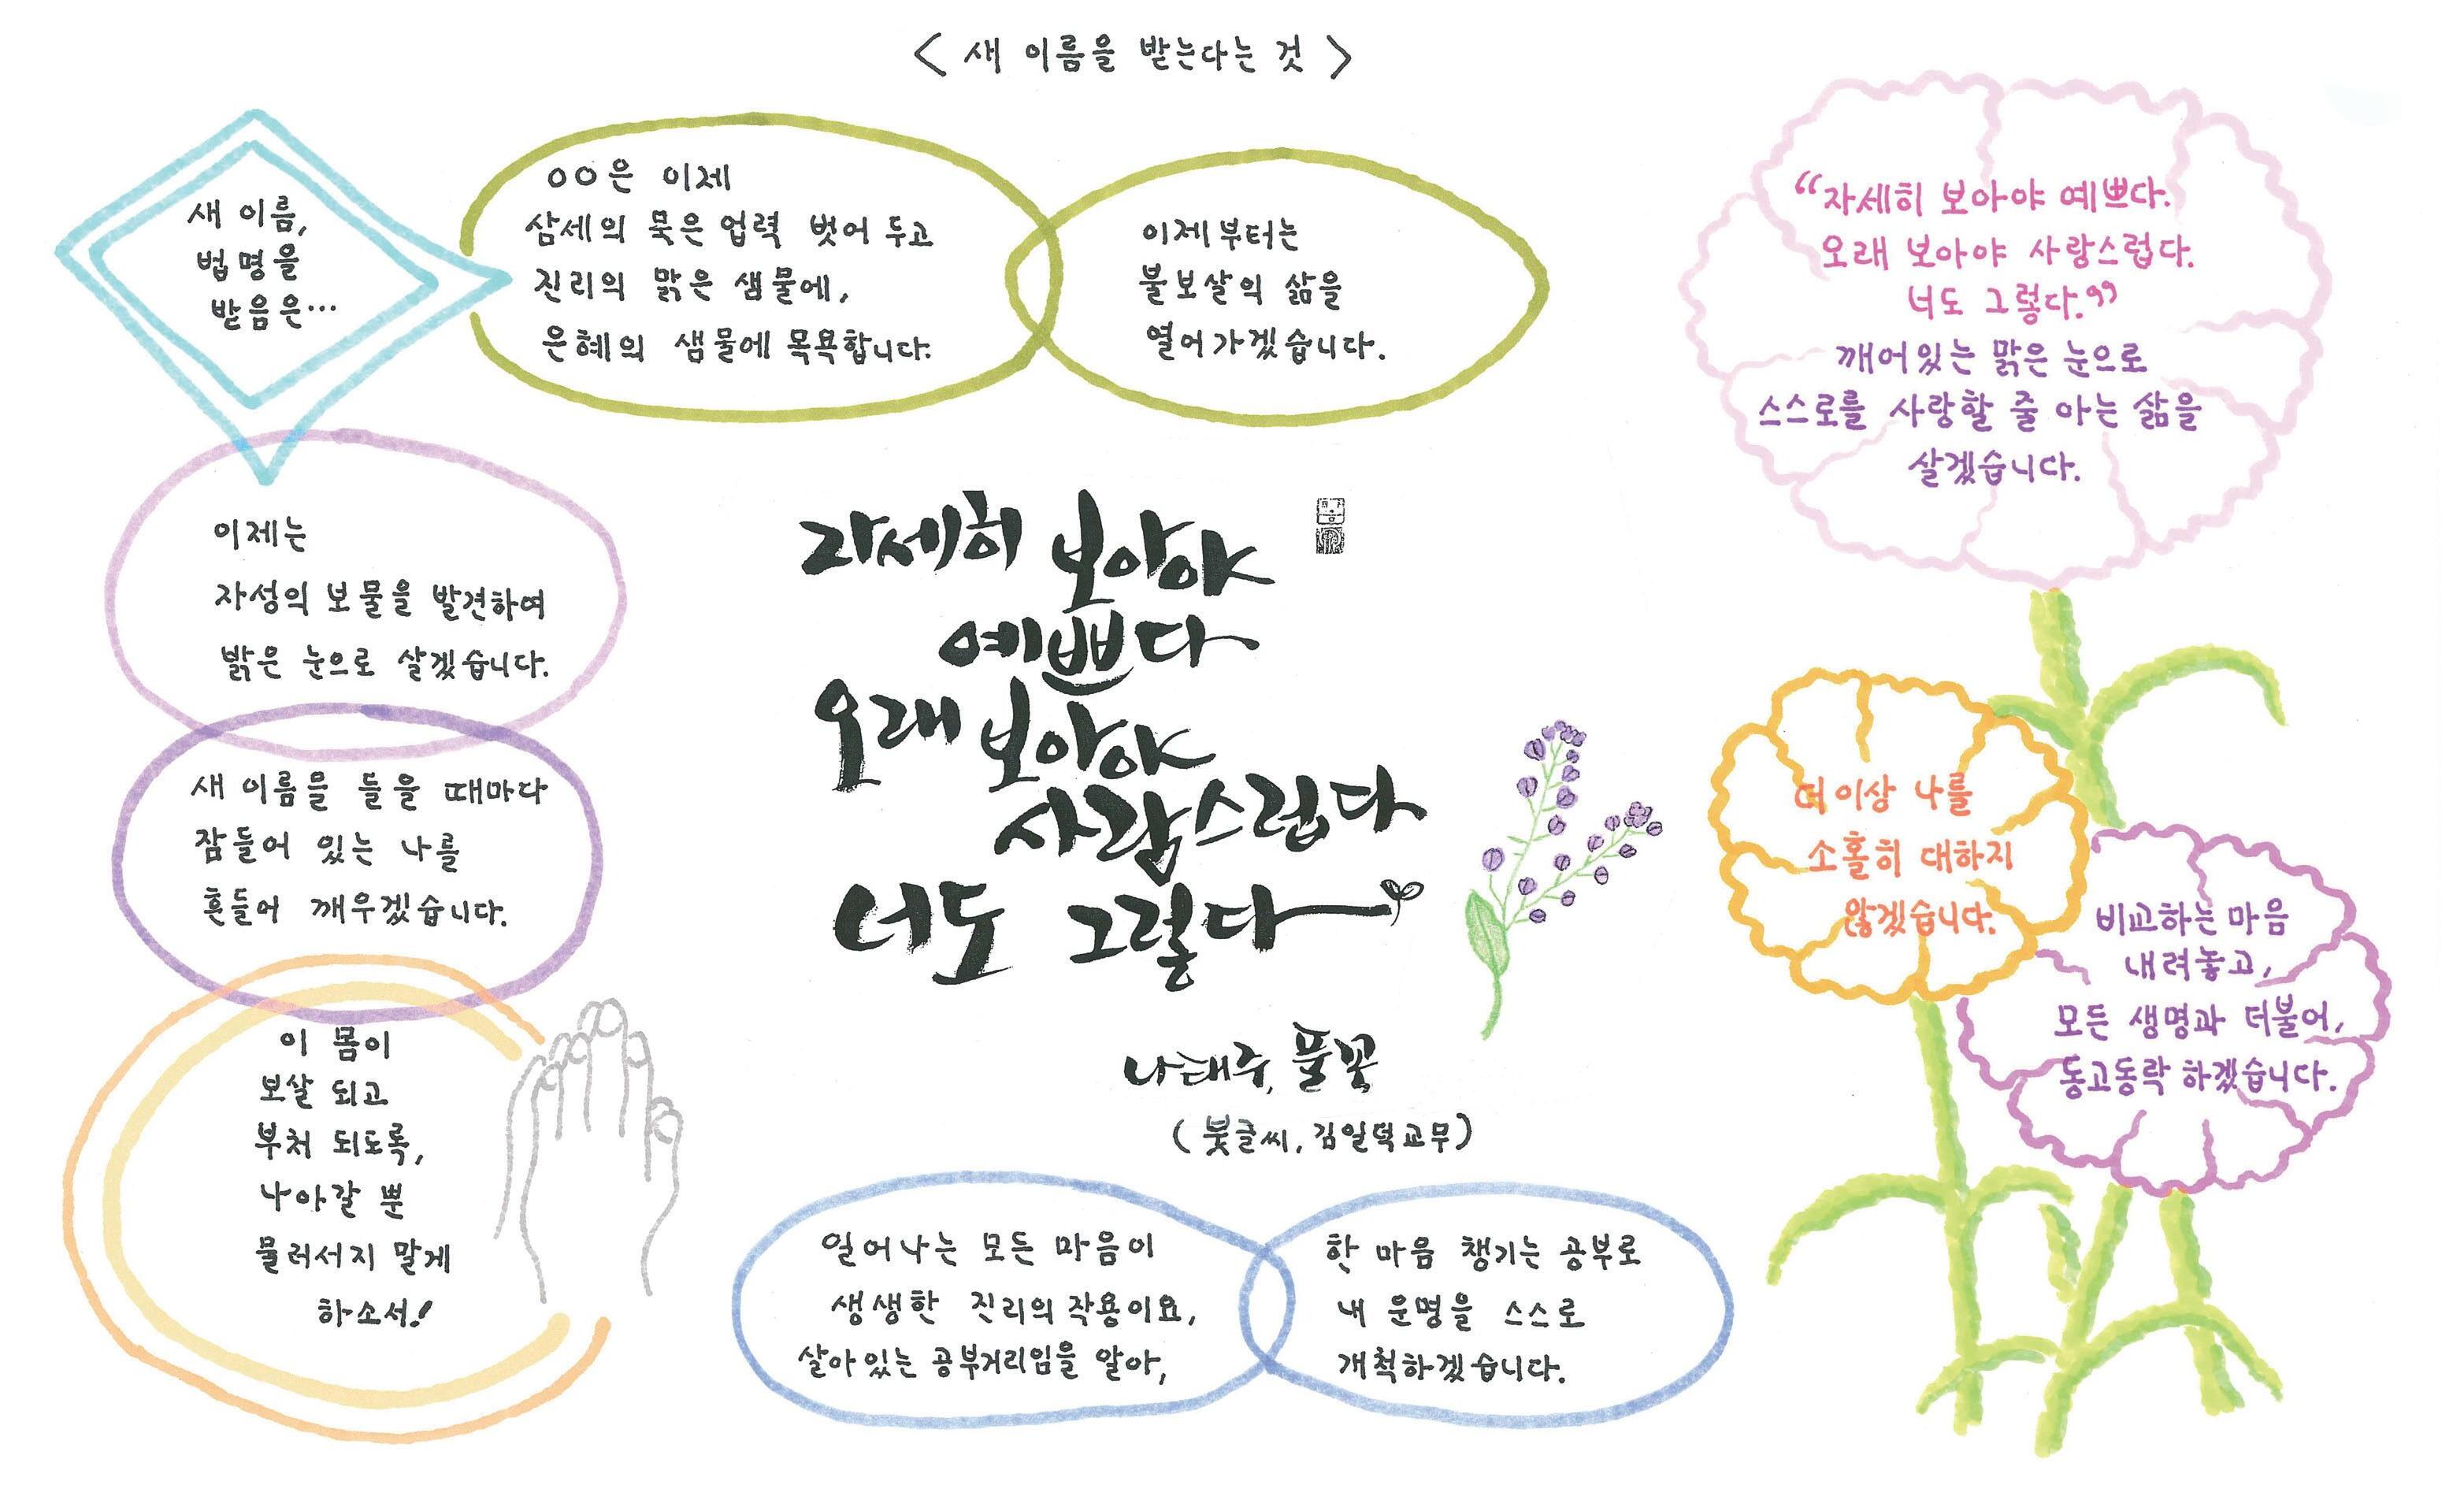 < 새 이름을 받는다는 것 >
새 이름,
법명을
받음은…
OO은 이제
삼세의 묵은 업력 벗어 두고
진리의 맑은 샘물에,
은혜의 샘물에 목욕합니다.
이제부터는
불보살의 삶을
열어가겠습니다.
이제는
자성의 보물을 발견하여
밝은 눈으로 살겠습니다.
새 이름을 들을 때마다
잠들어 있는 나를
흔들어 깨우겠습니다.
이 몸이
보살 되고
부처 되도록,
나아갈 뿐
물러서지 말게
하소서!
자세히 보아야
예쁘다
오래 보아야
사랑스럽다
너도 그렇다
나태주, 풀꽃
(붓글씨, 김일덕교무)
일어나는 모든 마음이
생생한 진리의 작용이요,
살아있는 공부거리임을 알아,
한 마음 챙기는 공부로
내 운명을 스스로
개척하겠습니다.
“자세히 보아야 예쁘다.
오래 보아야 사랑스럽다.
너도 그렇다.”
깨어있는 맑은 눈으로
스스로를 사랑할 줄 아는 삶을
살겠습니다.
더 이상 나를
소홀히 대하지
않겠습니다.
비교하는 마음
내려놓고,
모든 생명과 더불어,
동고동락 하겠습니다.